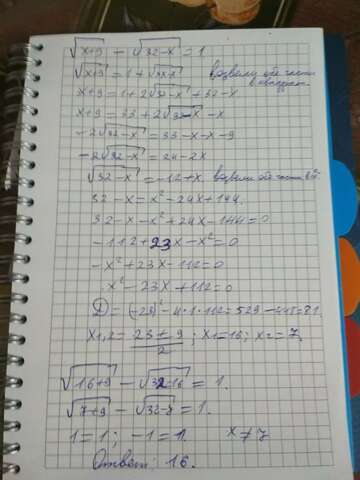 √x+9 − √32−x = 1
√x+9 = 1+√32-x возведём обе части
в квадрат.
x+9 = 1+2√32−x + 32−x
x+9 = 33 + 2√32−x − x
−2√32−x = 33 −x −x −9
−2√32−x = 24 − 2x
√32−x = −12+x. возведём обе части в
32−x = x² − 24x + 144.
32−x−x²+24x−144=0
−112+23x−x²=0
−x²+23x−112=0
x²−23x+112=0
D = (−23)²−4·1·112 = 529−448=81.
x1,2 = 23±9/2; x1=16; x2=7.
√16+9 − √32-16 = 1.
√7+9 − √32-7 = 1.
1=1; −1=1. x≠7
Ответ: 16.